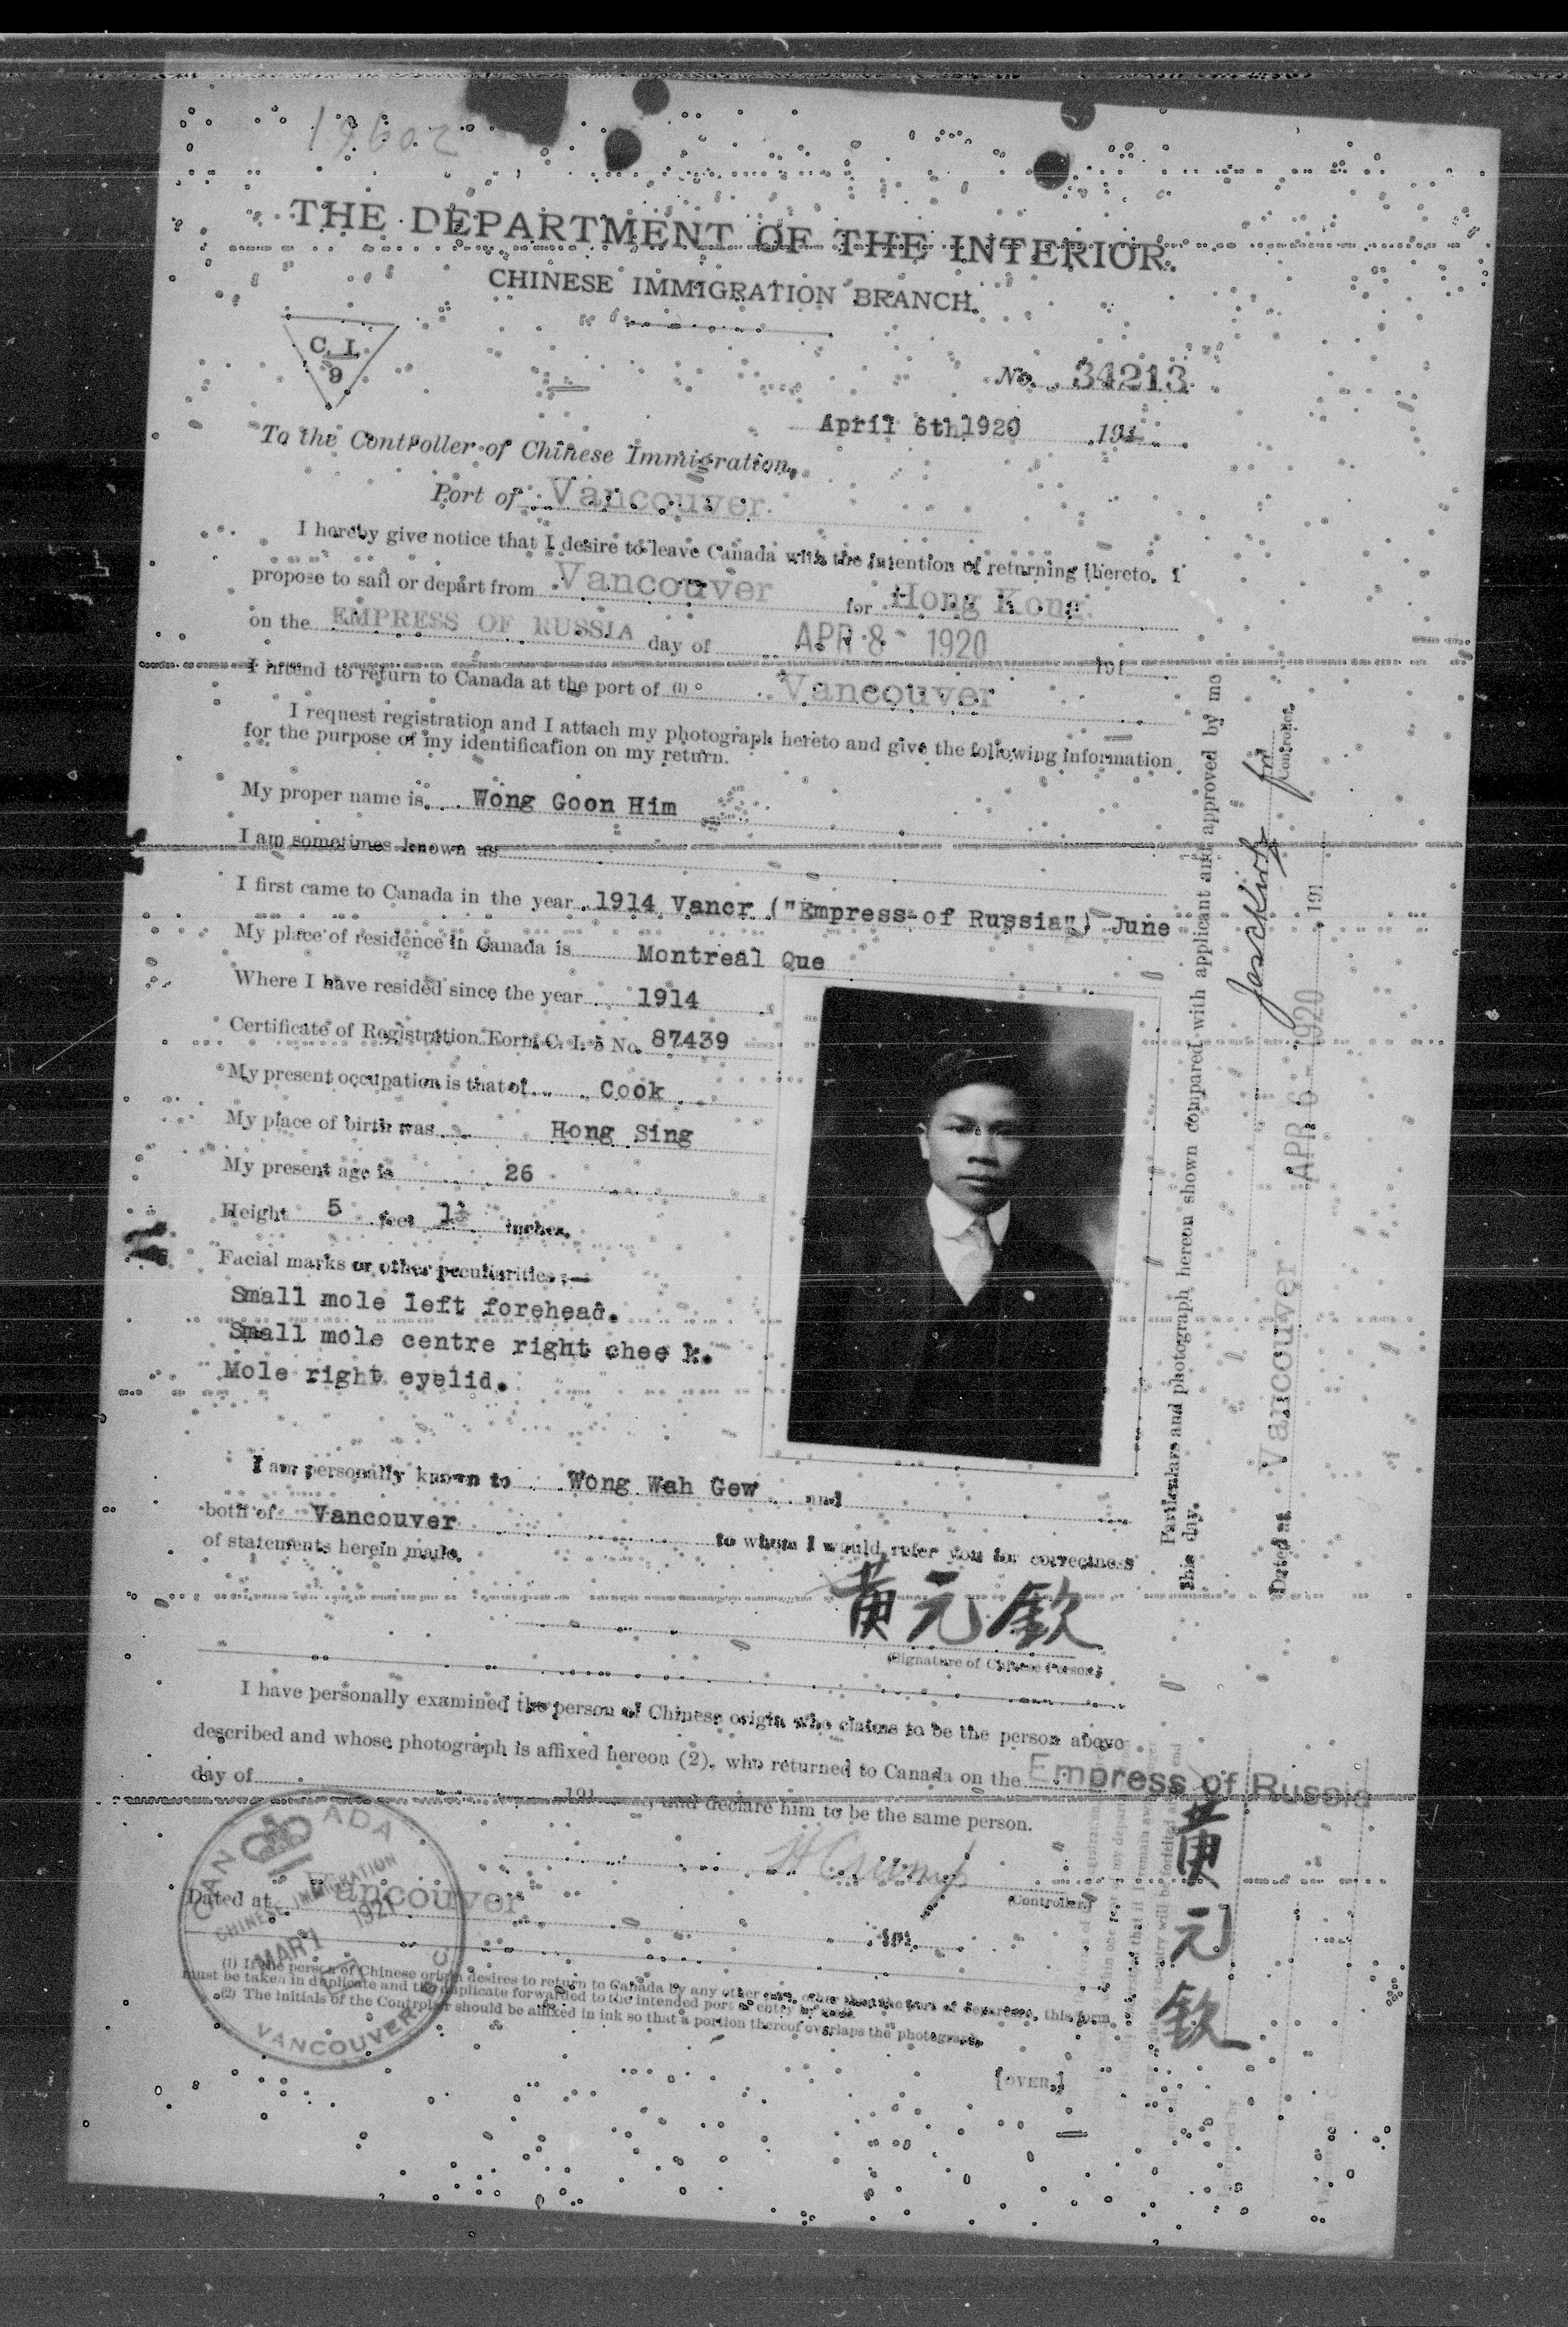 19602
THE DEPARTMENT OF THE INTERIOR.
CHINESE IMMIGRATION BRANCH.
C. I.
9
No. 34213
April 6th 1920 191
To the Controller of Chinese Immigration,
Port of Vancouver.
I hereby give notice that I desire to leave Canada with the intention of returning thereto. I
propose to sail or depart from Vancouver for Hong Kong.
on the EMPRESS OF RUSSIA day of APR 8 - 1920 191
I intend to return to Canada at the port of (1) Vancouver
I request registration and I attach my photograph hereto and give the following information
for the purpose of my identification on my return.
My proper name is Wong Goon Him
I am sometimes known as
I first came to Canada in the year 1914 Vancr ("Empress of Russia") June
My place of residence in Canada is Montreal Que
Where I have resided since the year 1914
Certificate of Registration Form C. I. 5 No. 87439
My present occupation is that of Cook
My place of birth was Hong Sing
My present age is 26
Height 5 feet inches.
Facial marks or other peculiarities :—
Small mole left forehead.
Small mole centre right chee k.
Mole right eyelid.
I am personally known to Wong Wah Gew and
both of Vancouver to whom I would refer you for correctness
of statements herein made.
黄元欽
(Signature of Chinese Person)
I have personally examined the person of Chinese origin who claims to be the person above
described and whose photograph is affixed hereon (2), who returned to Canada on the Empress of Russia
day of 191 , and declare him to be the same person.
(Controller)
Dated at Vancouver
191
(1) If the person of Chinese origin desires to return to Canada by any other port, other than the port of departure, this form
must be taken in duplicate and the duplicate forwarded to the intended port of entry
(2) The initials of the Controller should be affixed in ink so that a portion thereof overlaps the photograph.
[OVER.]
CANADA
CHINESE IMMIGRATION
MAR 1 1921
VANCOUVER B.C.
Particulars and photograph hereon shown compared with applicant and approved by me
this day.
Controller.
Dated at Vancouver APR 6 - 1920 191
黄元欽